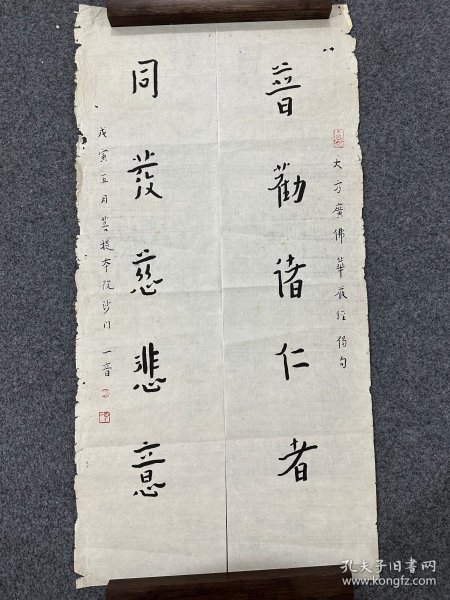 大方廣佛華嚴經偈句
普勸諸仁者
同發慈悲意
戊寅五月菩提本院沙门一音
孔夫子旧书网
www.kongfz.com